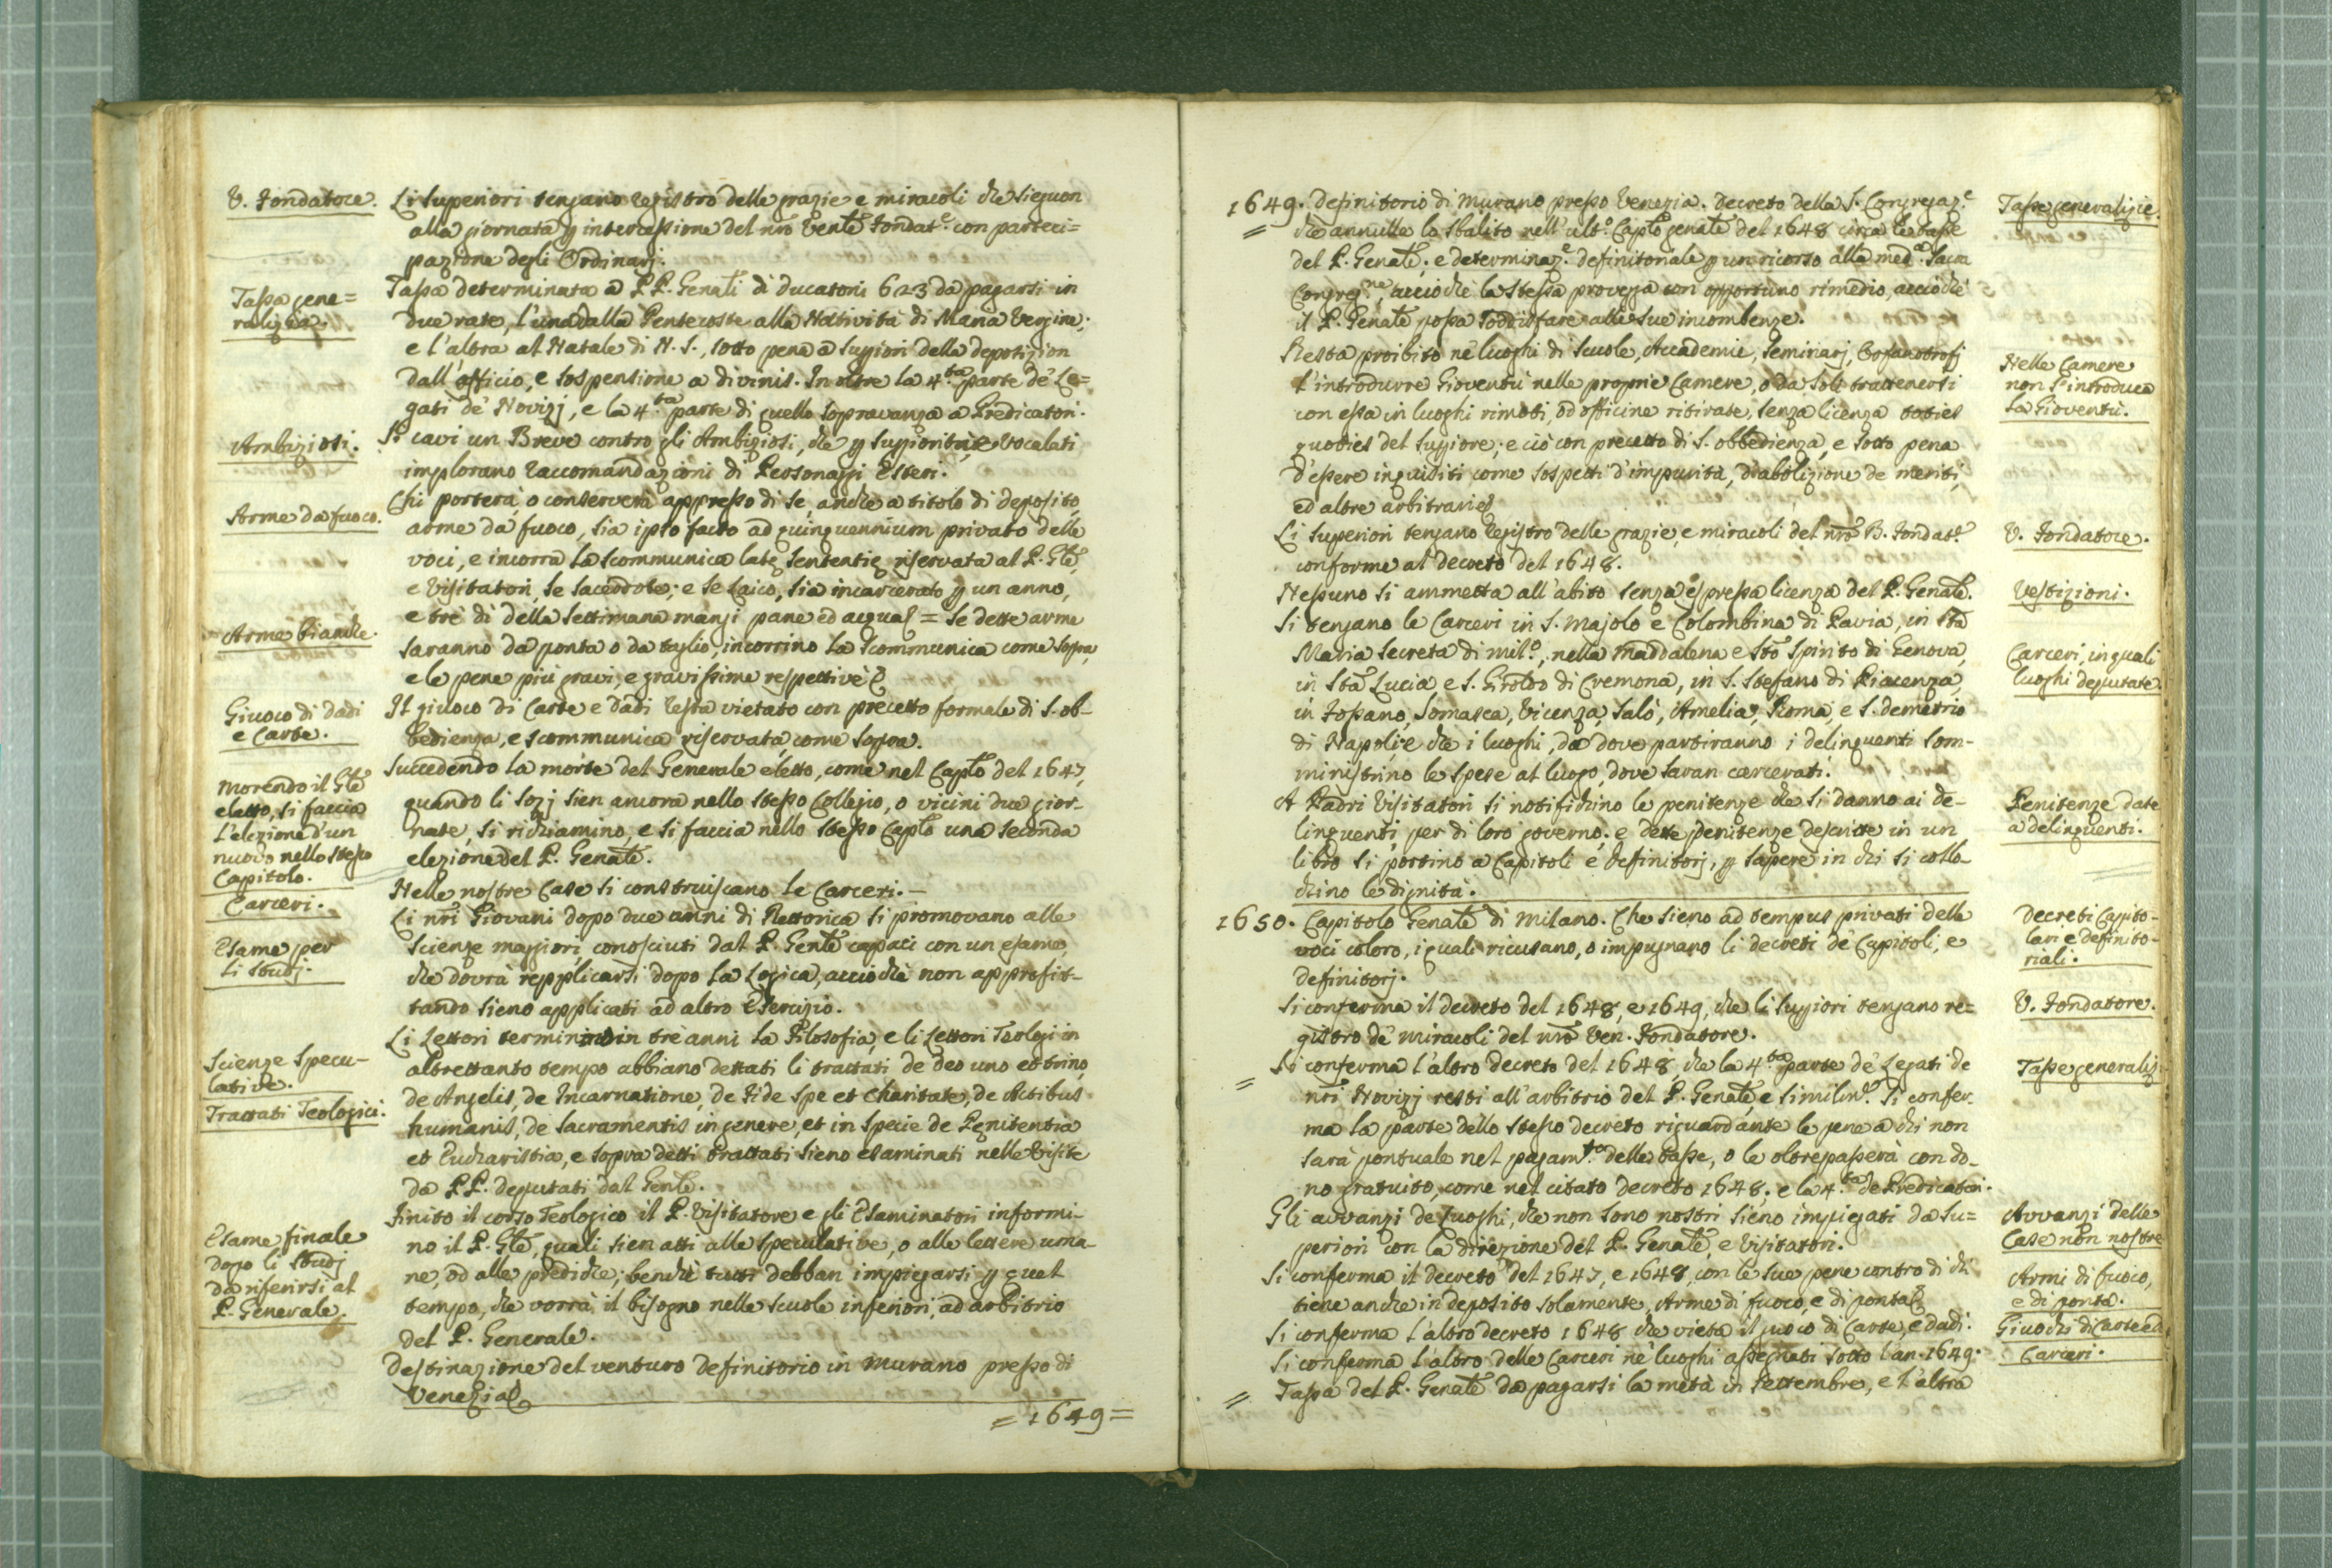 V. Fondatore.
Li Superiori tengano registro delle grazie e miracoli che sieguon
alla giornata p intercessione del nrō Ven.te Fondat.e con parteci=
pazione degli Ordinarj.
Tassa gene=
ralizia.
Tassa determinata a PP. Genāli di ducatoni 623 da pagarsi in
due rate, l'una dalla Pentecoste alla Natività di Maria Vergine;
e l'altra al Natale di N. S., sotto pena a Suppiori della deposizion
dall'officio, e sospensione a divinis. In oltre la 4.ta parte de' Le=
gati de' Novizj, e la 4.ta parte di quello sopravanza a Predicatori.
Ambiziosi.
Si cavi un Breve contro gli Ambiziosi, che p Suppiorità, e Vocalati
implorano raccomandazioni di Personaggi Esteri.
Arme da fuoco.
Chi porterà, o conserverà appresso di se, anche a titolo di deposito,
arme da fuoco, sia ipso facto ad quinquennium privato delle
voci, e incorra la scommunica latę sententię riservata al P. Gle,
e Visitatori, se Sacerdote; e se Laico, sia incarcerato p un anno,
e trè dì della settimana mangi pane ed acqua = Se dette arme
Arme bianche.
saranno da ponta o da taglio, incorrino la scommunica come sopra,
e le pene più gravi, e gravissime respettivè
Giuoco di dadi
e Carte.
Il giuoco di Carte e Dadi resta vietato con precetto formale di S. ob-
bedienza, e scommunica riservata come sopra.
Morendo il Gle
eletto, si faccia
L'elezione d'un
nuovo nello stesso
Capitolo.
Succedendo la morte del Generale eletto, come nel Caplo del 1647,
quando li Sozj sien ancora nello stesso Collegio, o vicini due gior-
nate, si richiamino, e si faccia nello stesso Caplo una seconda
elezione del P. Genāle.
Carceri.
Nelle nostre Case si construiscano le Carceri. —
Esame per
li studj.
Li nrī Giovani dopo due anni di Rettorica si promovano alle
scienze maggiori, conosciuti dal P. Genle capaci con un esame,
che dovrà repplicarsi dopo la Logica, acciochè non approfit-
tando sieno applicati ad altro Esercizio.
Scienze Specu-
lative.
Li Lettori terminino in trè anni la Filosofia, e li Lettori Teologi in
altrettanto tempo abbiano dettati li trattati de Deo uno et trino,
Trattati Teologici.
de Angelis, de Incarnatione, de Fide Spe et Charitate, de Actibus
humanis, de Sacramentis in genere, et in specie de Pęnitentia
et Eucharistia, e sopra detti trattati sieno esaminati nelle Visite
da PP. deputati dal Genle.
Esame finale
dopo li studj
da riferirsi al
P. Generale.
Finito il corso Teologico il P. Visitatore e gli Esaminatori informi-
no il P. Gle, quali sien atti alle speculative, o alle lettere uma-
ne, od alle prediche; benchè tutti debban impiegarsi p quel
tempo, che vorrà il bisogno nelle scuole inferiori, ad arbitrio
del P. Generale.
Destinazione del venturo Definitorio in Murano presso di
Venezia
= 1649 =
1649. Definitorio di Murano presso Venezia. Decreto della S. Congregaz.e
Tasse generalizie.
che annulla lo sbalito nell'ult.o Caplo genāle del 1648 circa le tasse
del P. Genāle; e determinaz.e definitoriale p un ricorso alla med.a Sacra
Congreg.ne, acciochè la stessa provegga con opportuno rimedio, acciochè
il P. Genāle possa soddisfare alle sue incombenze.
Nelle Camere
non s'introduca
la Gioventù.
Resta proibito ne' luoghi di Scuole, Accademie, Seminarj, Orfanotrofj
l'introdurre Gioventù nelle proprie Camere, o da soli trattenersi
con essa in luoghi rimoti, od officine ritirate, senza licenza toties
quoties del Suppiore; e ciò con precetto di S. obbedienza, e sotto pena
d'essere inquisiti come sospetti d'impurità, d'abolizione de meriti,
ed altre arbitrarie
V. Fondatore.
Li Superiori tengano registro delle grazie, e miracoli del nrō B. Fondat.e
conforme al decreto del 1648.
Vestizioni.
Nessuno si ammetta all'abito senza espressa licenza del P. Genāle.
Carceri, in quali
luoghi deputate.
Si tengano le Carceri in S. Majolo e Colombina di Pavia, in Sta
Maria Secreta di Mil.o, nella Maddalena e Sto Spirito di Genova,
in Sta Lucia e S. Giroldo di Cremona, in S. Stefano di Piacenza,
in Fossano, Somasca, Vicenza, Salò, Amelia, Roma, e S. Demetrio
di Napoli; e che i luoghi, da dove partiranno i delinquenti som-
ministrino le spese al luogo, dove saran carcerati.
Penitenze date
a delinquenti.
A Padri Visitatori si notifichino le penitenze che si danno ai de-
linquenti, per di loro governo; e dette penitenze descritte in un
libro si portino a Capitoli e Definitorj, p sapere in chi si collo-
chino le dignità.
1650. Capitolo Genāle di Milano. Che sieno ad tempus privati delle
Decreti Capito-
lari e definito-
riali.
voci coloro, i quali ricusano, o impugnano li decreti de' Capitoli, e
Definitorj.
V. Fondatore.
Si conferma il decreto del 1648, e 1649, che li Suppiori tengano re=
gistro de' miracoli del nrō Ven. Fondatore.
Tasse generalizie
Si conferma l'altro decreto del 1648 che la 4.ta parte de' Legati de
nrī Novizj resti all'arbitrio del P. Genāle, e similm.e si confer-
ma la parte dello stesso decreto riguardante le pene a chi non
sarà pontuale nel pagam.to delle tasse, o le oltrepasserà con do-
no gratuito, come nel citato decreto 1648. e la 4.ta de Predicatori.
Avvanzi delle
Case non nostre
Gli avvanzi de luoghi, che non sono nostri sieno impiegati da Su=
periori con la direzione del P. Genāle, e Visitatori.
Armi di fuoco,
e di ponta.
Si conferma il decreto del 1647, e 1648, con le sue pene contro di chi
tiene anche in deposito solamente, Arme di fuoco, e di ponta
Giuochi di Carte ed
Si conferma l'altro decreto 1648 che vieta il juoco di Carte, e dadi.
Carceri.
Si conferma l'altro delle Carceri ne' luoghi assegnati sotto l'an. 1649.
Tassa del P. Genāle da pagarsi la metà in Settembre, e l'altra